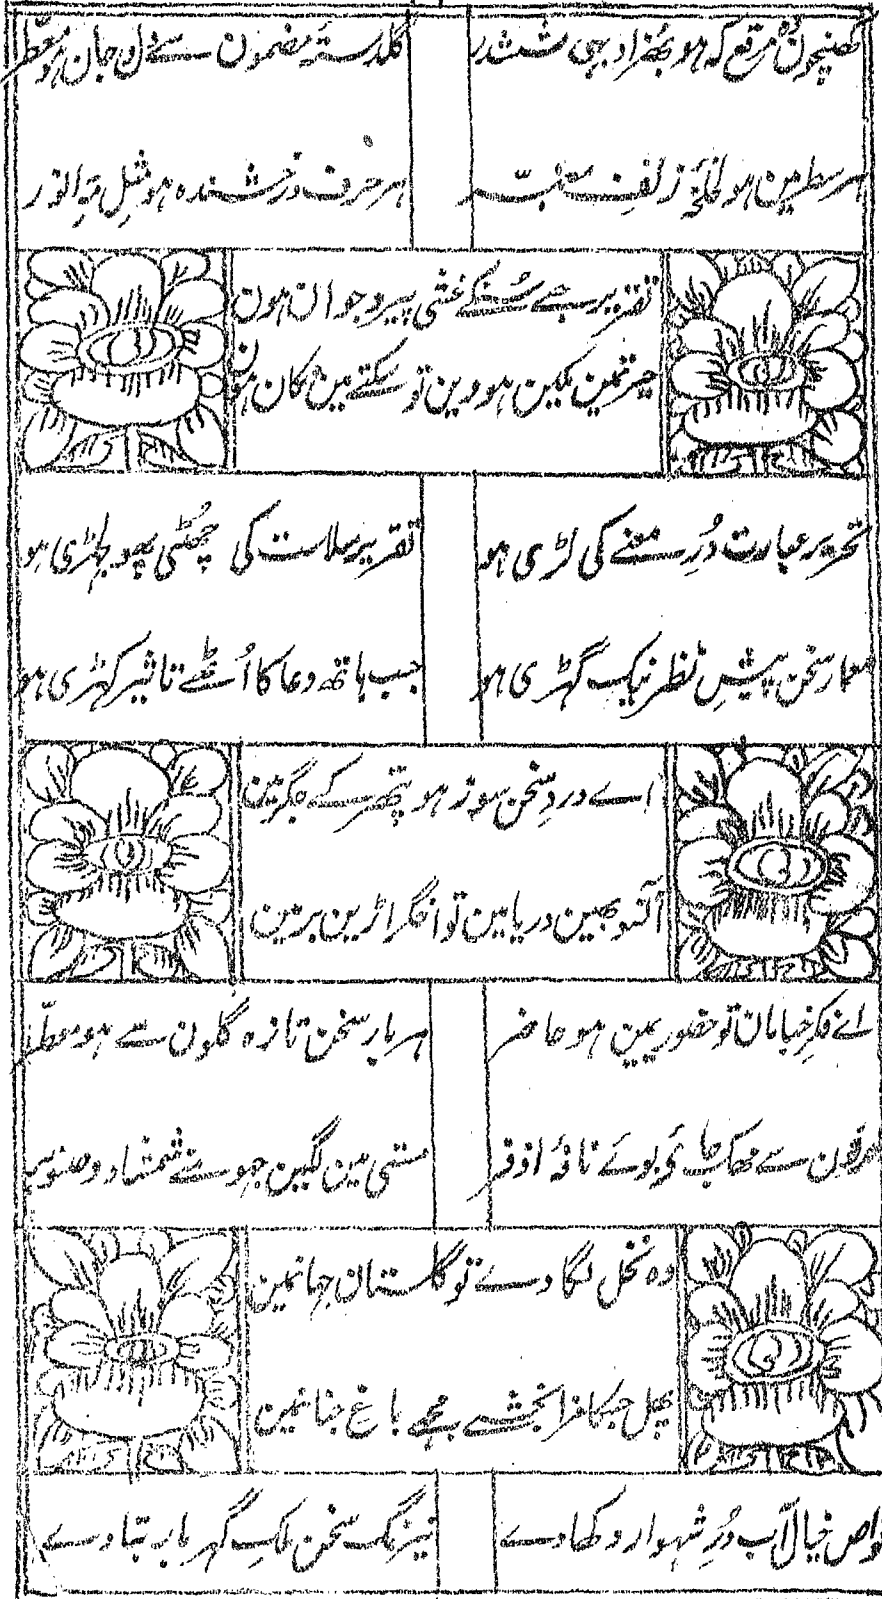 کھینچوں وہ مرقع کہ ہو بہزاد بہی ششدر
گلدستۂ مضمون سے دل و جان ہو معطر
ہر سطر مین ہو لخلخۂ زلفِ معنبّر
ہر حرف درخشندہ ہو مثلِ مہِ انور
تقریر جسے سُنکے غشی پیر و جوان ہون
حیرتمین مکین ہووین تو سکتے مین مکان ہون
تحریر عبارت دُرِ معنے کی لڑی ہو
تقریر سلاست کی چھُٹی پھولجھڑی ہو
معمار سخن پیشِ نظر نیک گہڑی ہو
جب ہاتھ دعا کا اُٹھے تاثیر کہڑی ہو
اے دردِ سخن سوز ہو پتھر کے جگر مین
آنسو بہین دریا مین تو اخگر اڑین بر مین
اے فکرِ خیابان تو حضور یمین ہو حاضر
ہر بار سخن تازہ گلون سے ہو معطّر
حرفون سے مہک جائے بوئے نافۂ اذفر
مستی مین کہین جہومتے شمشاد و صنوبر
وہ نخل لگا دے تو گلستان جہانمین
پھل جسکا مزا بخشے مجھے باغ جنانمین
غواص خیال آب دُرِ شہوار دکھا دے
نیرنگ سخن ملکِ گہر بار بتا دے